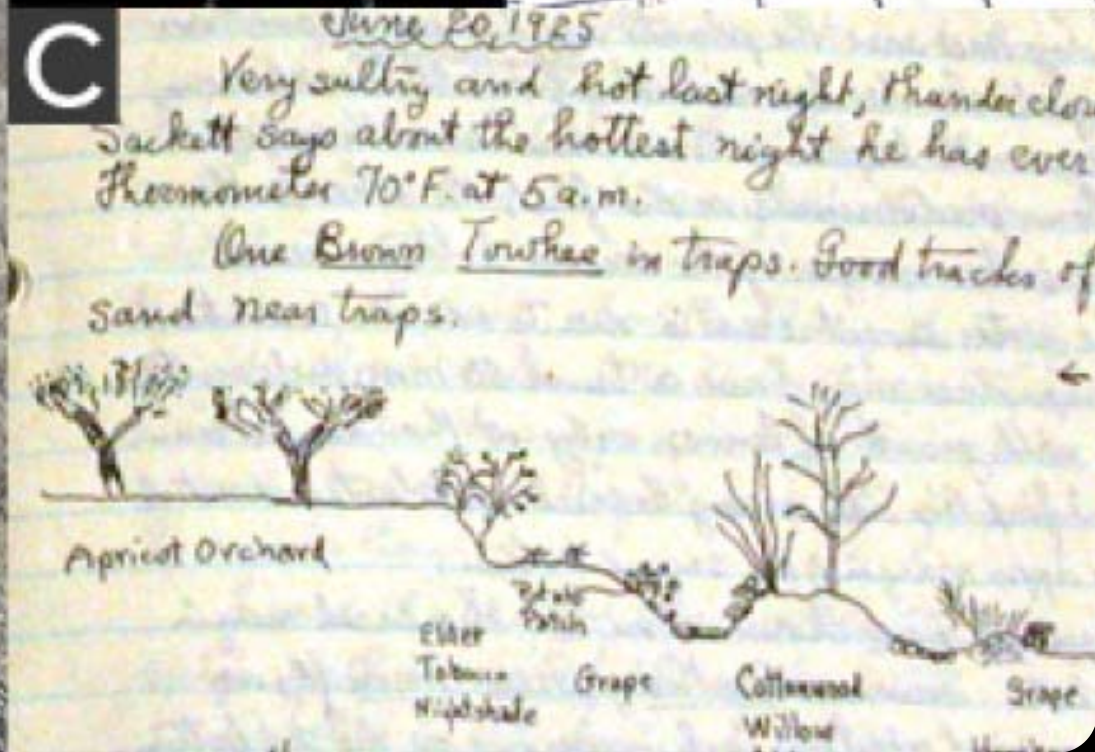 C
June 20, 1925
Very sultry and hot last night, thunder clou
Sackett says about the hottest night he has ever
Thermometer 70°F. at 5 a.m.
One Brown Towhee in traps. Good tracks of
sand near traps.
←
Apricot Orchard
Potato
Patch
Elder
Tobacco
Nightshade
Grape
Cottonwood
Willow
Grape